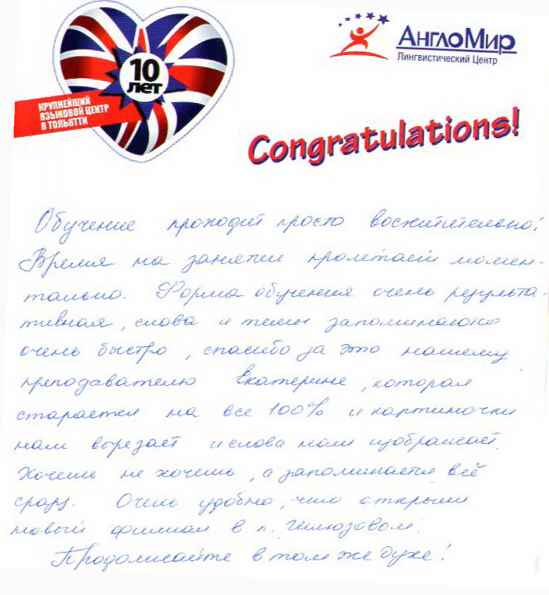 10
ЛЕТ
КРУПНЕЙШИЙ
ЯЗЫКОВОЙ ЦЕНТР
В ТОЛЬЯТТИ
АнглоМир
Лингвистический Центр
Congratulations!
Обучение проходит просто восхитительно!
Время на занятии пролетает момен-
тально. Форма обучения очень результа-
тивная, слова и темы запоминаются
очень быстро, спасибо за это нашему
преподавателю Екатерине, которая
старается на все 100% и картиночки
нам вырезает и слова нам изображает.
Хочешь не хочешь, а запоминается всё
сразу. Очень удобно, что открыли
новый филиал в п. Шлюзовом.
Продолжайте в том же духе!